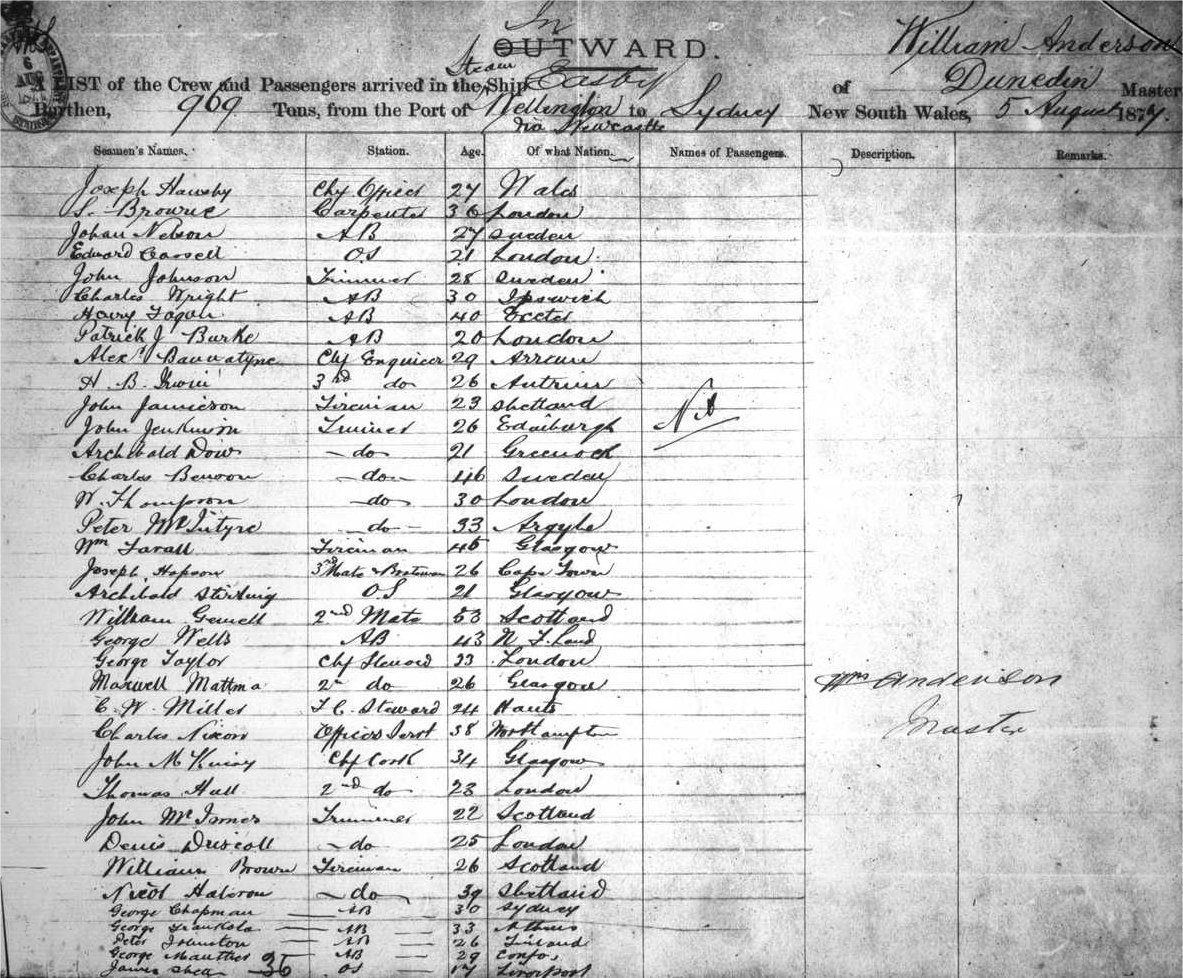 In
OUTWARD.
William Anderson
Steam
A LIST of the Crew and Passengers arrived in the Ship Easby of Dunedin Master
Burthen, 969 Tons, from the Port of Wellington to Sydney New South Wales, 5 August 1877.
via Newcastle
Seamen's Names. Station. Age. Of what Nation. Names of Passengers. Description. Remarks.
Joseph Chf Officer 27 Wales
S. Browne Carpenter 36 London
Johan Nelson AB 27 Sweden
Edward Cassell OS 21 London
John Johnson Trimmer 28 Sweden
Charles Wright AB 30 Ipswich
Harry Fagan AB 40 Exeter
Patrick J Burke AB 20 London
Alexr Bannatyne Chf Engineer 29 Arran
H. B. Irwin 3rd do 26 Antrim
John Jamieson Fireman 23 Shetland
Nil
John Jenkinson Trimmer 26 Edinburgh
Archibald Dow do 21 Greenock
Charles Benson do 46 Sweden
W. Thompson do 30 London
Peter McIntyre do 33 Argyle
Wm Fireman 45 Glasgow
Joseph Hopson 3rd Mate & Boatswain 26 Cape Town
Archibald Stirling OS 21 Glasgow
William Gemell 2nd Mate 53 Scotland
George Wells AB 43 N. F. Land
George Taylor Chf Steward 33 London
Maxwell 2nd do 26 Glasgow
Wm Anderson
C. W. Miller F.C. Steward 24 Hants
Master
Charles Nixon Officers Servt 38 Northampton
John Chf Cook 34 Glasgow
Thomas Hall 2nd do 23 London
John McInnes Trimmer 22 Scotland
Denis Driscoll do 25 London
William Brown Fireman 26 Scotland
Nicol Halcrow do 39 Shetland
George Chapman AB 30 Sydney
George AB 33 Athens
Peter Johnston AB 26 Finland
George AB 29
James Shea 36 OS 17 Liverpool